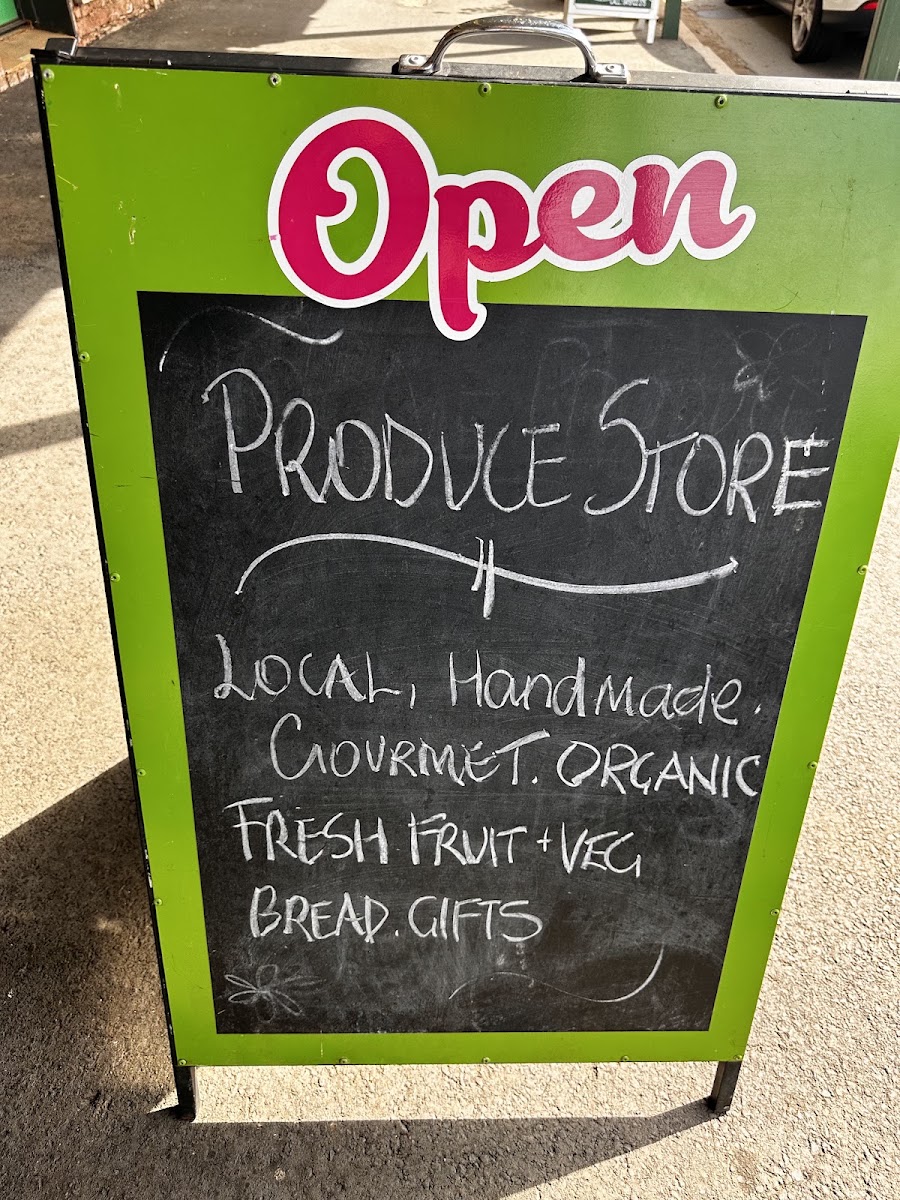 Open
PRODUCE STORE
LOCAL, Handmade.
GOURMET. ORGANIC
FRESH FRUIT + VEG
BREAD. GIFTS